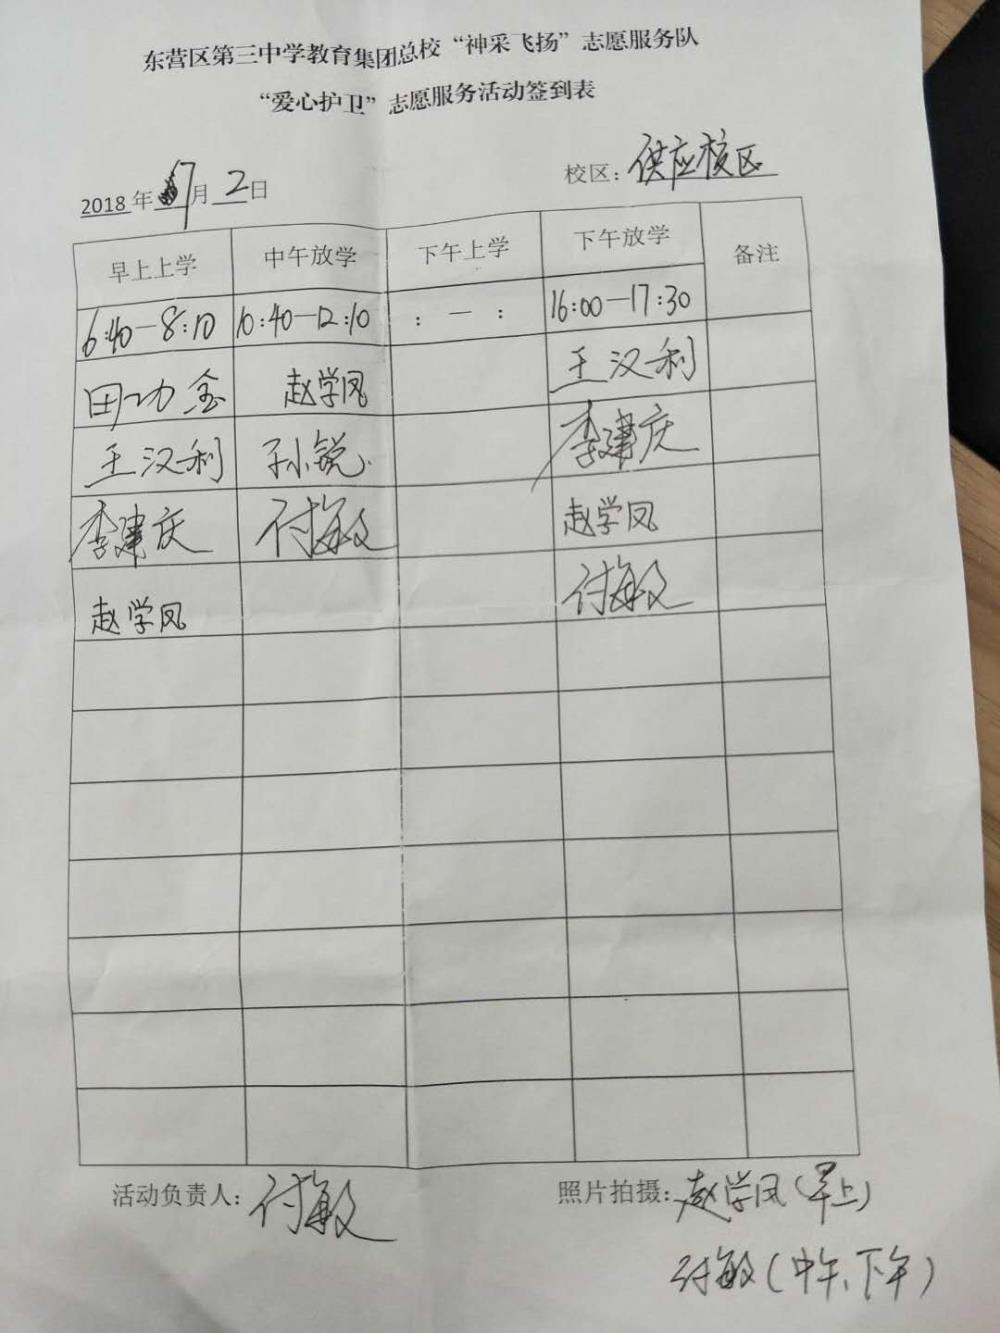 东营区第三中学教育集团总校“神采飞扬”志愿服务队
“爱心护卫”志愿服务活动签到表
2018年7月2日 校区：供应校区
早上上学 中午放学 下午上学 下午放学 备注
6:40—8:10 10:40—12:10 : — : 16:00—17:30
田功金 赵学凤 王汉利
王汉利 孙锐 李建庆
李建庆 付敏 赵学凤
赵学凤 付敏
活动负责人：付敏 照片拍摄：赵学凤（早上）
付敏（中午、下午）